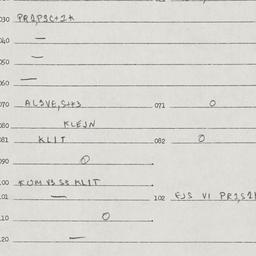 030 PR2,P3C+2K
040 —
050 —
060 —
070 ALSVE,S+K3 071 0
080 KLEJN
081 KLIT 082 0
090 0
100 KUM V3 S3 KLIT
101 — 102 EJS VI PR2,S2
110 0
120 —